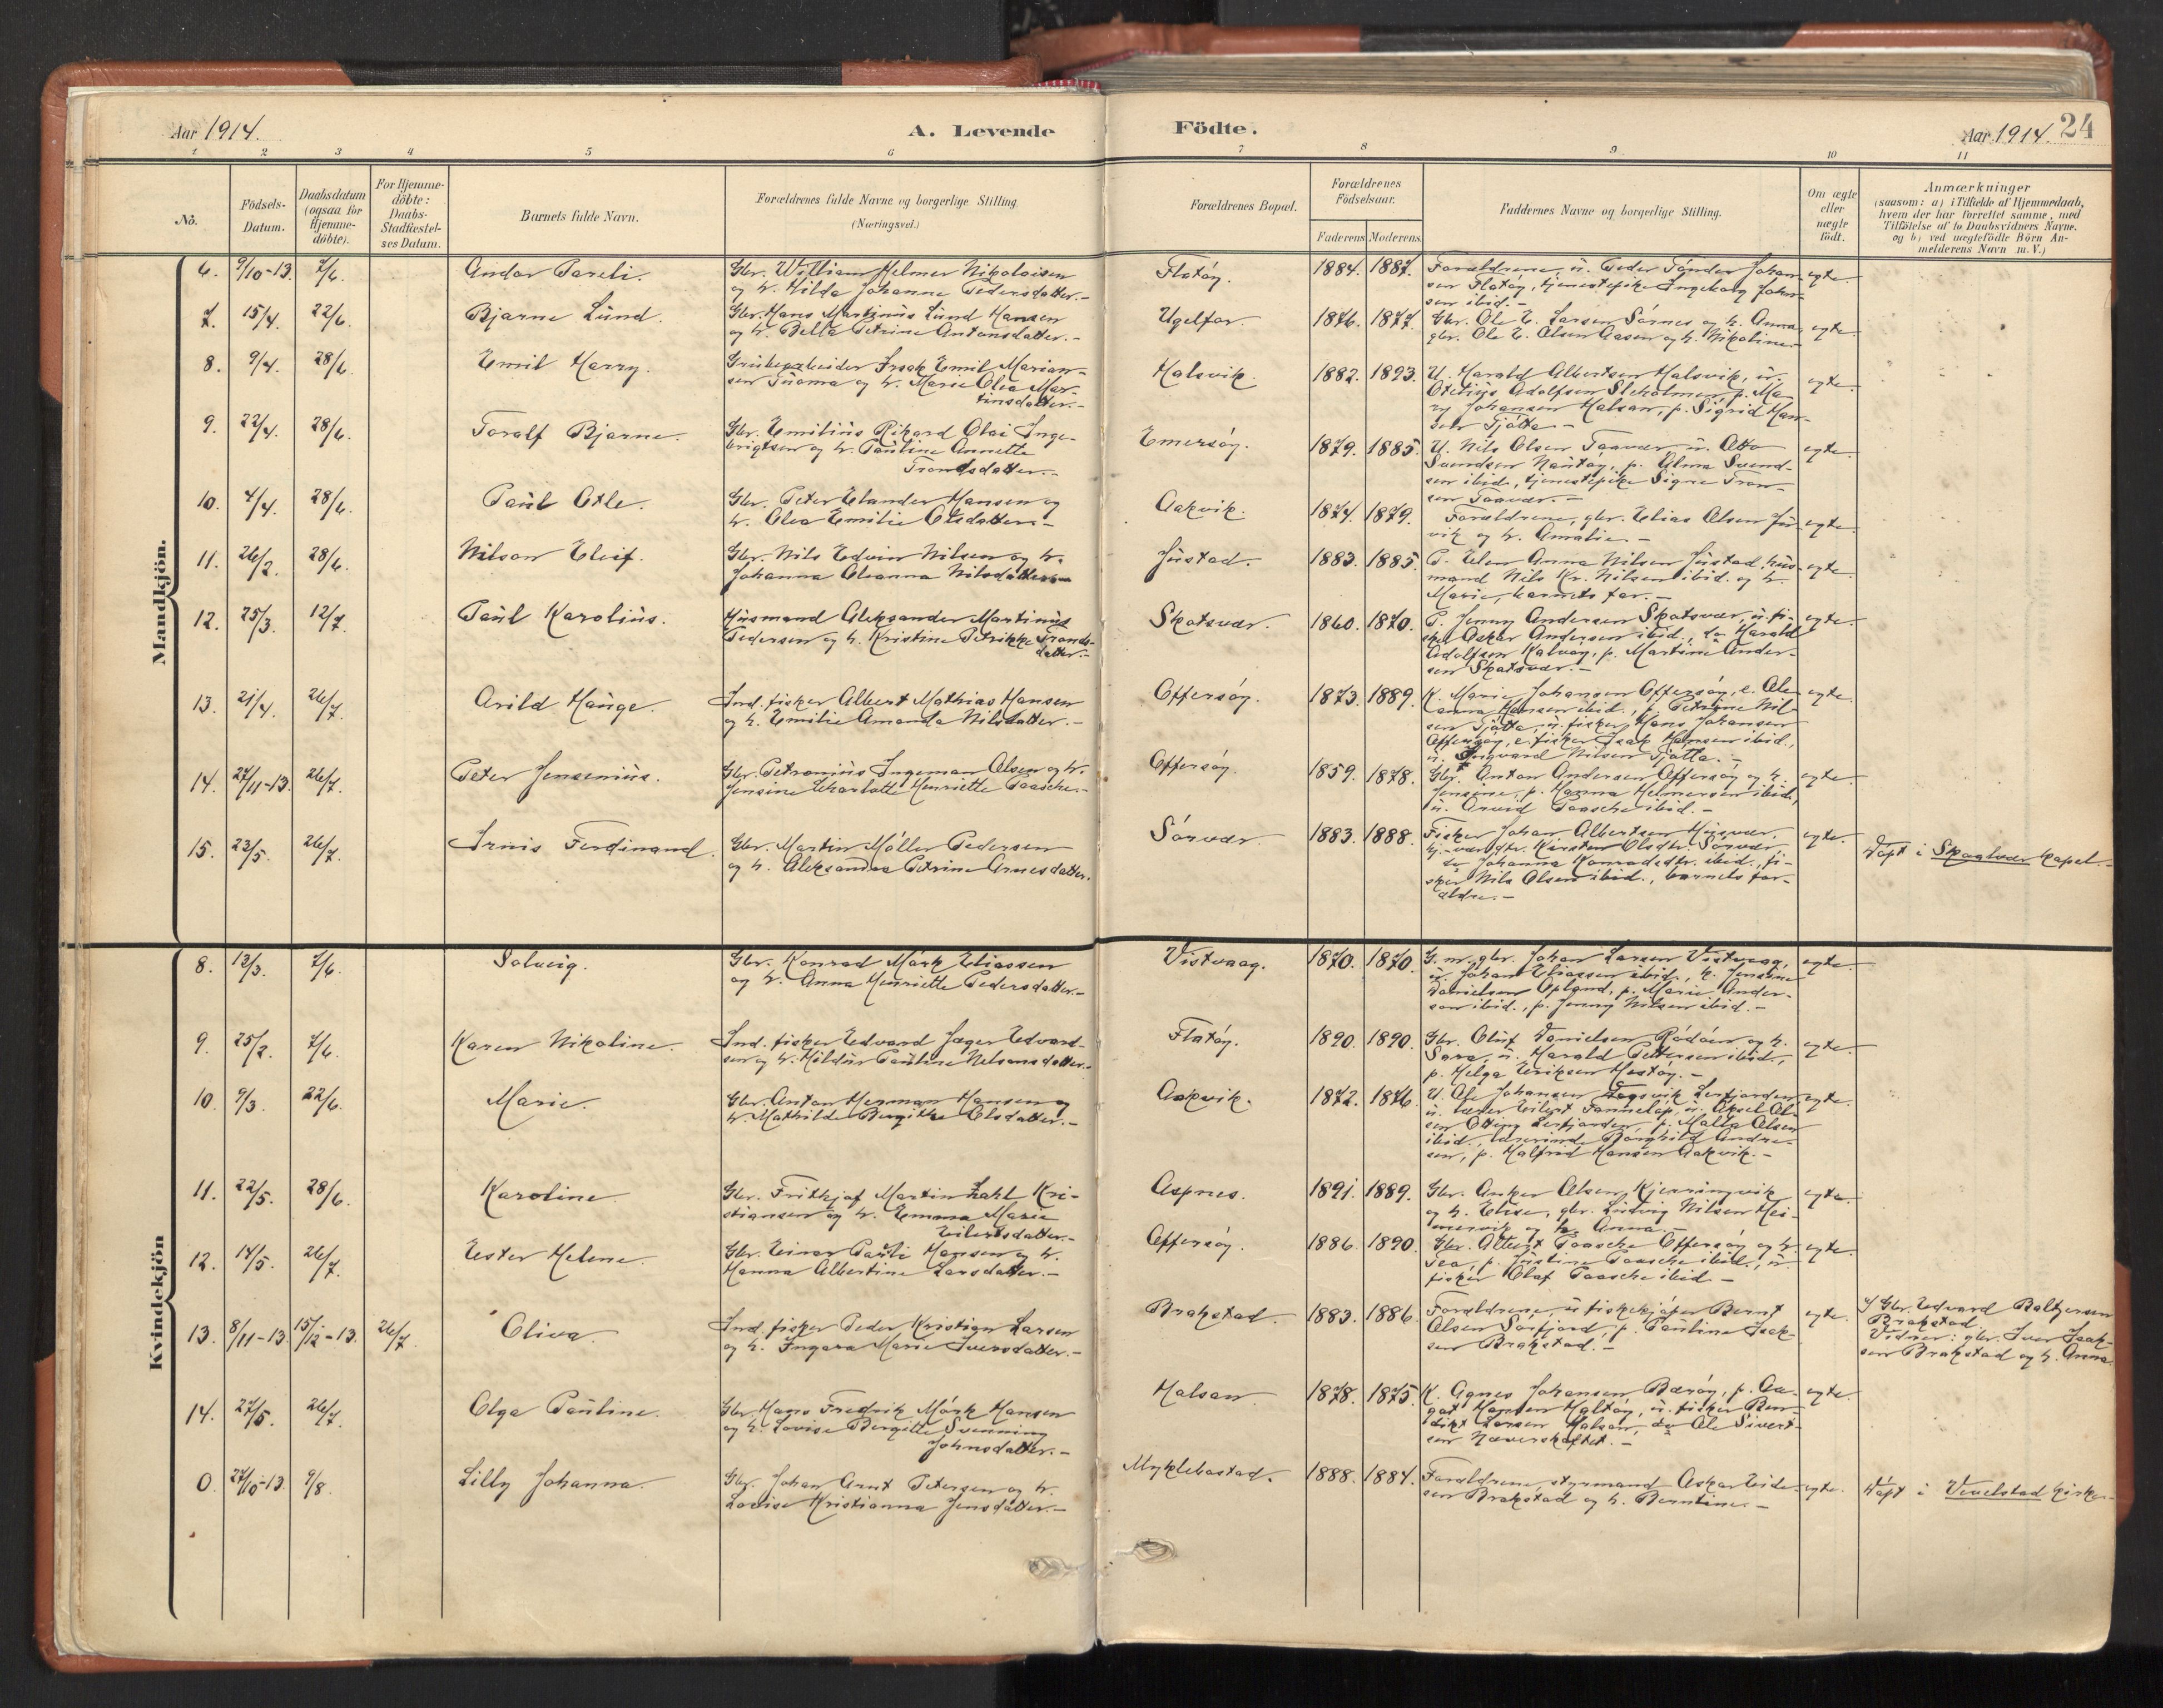 Aar 1914.
A. Levende
Födte.
Aar 1914.
24
1 2 3 4 5 6 7 8 9 10 11
No.
Födsels-
Datum.
Daabsdatum
(ogsaa for
Hjemme-
döbte).
For Hjemme-
döbte:
Daabs-
Stadfæstel-
ses Datum.
Barnets fulde Navn.
Forældrenes fulde Navne og borgerlige Stilling
(Næringsvei.)
Forældrenes Bopæl.
Forældrenes
Födselsaar.
Faderens
Moderens
Faddernes Navne og borgerlige Stilling.
Om ægte
eller
uægte
født.
Anmærkninger
(saasom: a) i Tilfælde af Hjemmedaab,
hvem der har forrettet samme, med
Tilföielse af to Daabsvidners Navne.
og b) ved uægtefödte Börn An-
melderens Navn m. V.)
Mandkjön.
6. 9/10-13. 7/6. Andor Pareli.
Gbr. William Helmer Nikolaisen
og h. Hilda Johanne Pedersdatter.-
Flatöy. 1884. 1887.
Forældrene, u. Peder Tönder Johan-
sen Flatöy, tjenestepike Ingeborg John-
sen ibid.-
egte.
7. 15/4. 22/6. Bjarne Lund.
Gbr. Hans Martinus Lund Hansen
og h. Bella Petrine Antonsdatter.-
Ugelfar. 1876. 1877.
Gbr. Ole E. Larsen Sörnes og h. Anna
gbr. Ole E. Olsen Aasen og h. Nikoline.-
egte.
8. 9/4. 28/6. Emil Harry.
Grubearbeider Isak Emil Marian-
sen Tuoma og h. Marie Olea Mar-
tinsdatter.-
Halsvik. 1882. 1893.
U. Harald Albertsen Halsvik, u.
Otelius Adolfsen Slekolmen, p. Ma-
ry Johansen Halsan, p. Sigrid Han-
sen Tjötta.-
egte.
9. 22/4. 28/6. Toralf Bjarne.
Gbr. Emilius Rikard Olai Inge-
brigtsen og h. Pauline Annette
Trondsdatter.-
Emersöy. 1879. 1885.
U. Nils Olsen Taavær, u. Otto
Svendsen Hautöy, p. Alma Svend-
sen ibid., tjenestepike Signe Tron-
sen Taavær.-
egte.
10. 4/4. 28/6. Paul Atle.
Gbr. Peter Elander Hansen og
h. Olea Emilie Olsdatter.-
Aakvik. 1874. 1879.
Forældrene, gbr. Elias Olsen
vik og h. Amalie.-
egte.
11. 26/2. 28/6. Nilson Eleif.
Gbr. Nils Edvin Nilsen og h.
Johanna Oleanna Nilsdatter.-
Justad. 1883. 1885.
P. Elen Anna Nilsen Justad, hus-
mand Nils Kr. Nilsen ibid. og h.
Marie, barnets far.-
egte.
12. 25/3. 12/7. Paul Karolius.
Husmand Aleksander Martinus
Pedersen og h. Kristine Petrikke Tronds-
datter.-
Skatsvær. 1860. 1870.
P. Jenny Andersen Skatsvær, u. fi-
sker Oskar Andersen ibid., do Harald
Adolfsen Kalvöy, p. Martine Ander-
sen Skatsvær.-
egte.
13. 21/4. 26/7. Arild Hauge.
Ind. fisker Albert Mathias Hansen
og h. Emilie Amanda Nilsdatter.-
Offersöy. 1873. 1889.
K. Marie Johansen Offersöy, e. Ole-
anna Hansen ibid., p. Petrine Nil-
sen Tjötta, u. fisker Hans Johansen
Offersöy, e. fisker Isak Hansen ibid.,
u. Ingvard Nilsen Tjötta.-
egte.
14. 27/11-13. 26/7. Peter Jensenius.
Gbr. Petronius Ingeman Olsen og h.
Jensine Charlotte Henriette Paasche.-
Offersöy. 1859. 1878.
Gbr. Anton Andersen Offersöy og h.
Jensine, p. Hanna Helmersen ibid.,
u. Arvid Paasche ibid.-
egte.
15. 23/5. 26/7. Irnis Ferdinand.
Gbr. Martin Möller Pedersen
og h. Aleksandra Petrine Arnesdatter.
Sörvær. 1883. 1888.
Fisker Johan Albertsen Husvær,
Kirsten Olsdtr. Sörvær,
do Johanna Konradsdtr. ibid., fi-
sker Nils Olsen ibid., barnets for-
ældre.-
egte.
Döpt i Skaalvær kapel.-
Kvindekjön
8. 13/3. 7/6. Solveig.
Gbr. Konrad Mörk Eliassen
og h. Anna Henriette Pedersdatter.-
Vistvaag. 1870. 1870.
G. m. gbr. Johan Larsen Vistvaag,
u. Johan Eliassen ibid., k. Jensine
Danielsen Opland, p. Marie Ander-
sen ibid., p. Jenny Nilsen ibid.-
egte.
9. 25/2. 7/6. Karen Nikoline.
Ind. fisker Edvard Jæger Edvard-
sen og h. Hildur Pauline Nelsensdatter.-
Flatöy. 1890. 1890.
Gbr. Oluf Danielsen Rödöen og h.
Sara, u. Harald Pettersen ibid.,
p. Helga Eriksen Hestöy.-
egte.
10. 9/3. 22/6. Marie.
Gbr. Anton Herman Hansen og
h. Mathilde Bergitte Olsdatter.-
Aakvik. 1872. 1876.
U. Ole Johansen Leirfjorden,
u. lærer Eilert Fannelöp, u. Aksel Ol-
sen Otting Leirfjorden, p. Malla Olsen
ibid., lærerinde Borghild Andre-
sen, p. Halfrid Hansen Aakvik.-
egte.
11. 22/5. 28/6. Karoline
Gbr. Frithjof Martin Zahl Kri-
stiansen og h. Emma Marie
Eilertsdatter.-
Aspnes. 1891. 1889.
Gbr. Anker Olsen Kjerringvik
og h. Elise, gbr. Ludvig Nilsen Hei-
mervik og h. Anna.-
egte.
12. 14/5. 26/7. Ester Helene.
Gbr. Einar Pauli Hansen og h.
Hanna Albertine Larsdatter.-
Offersöy. 1886. 1890.
Gbr. Albert Paasche Offersöy og h.
Tea, p. Justine Paasche ibid., u.
fisker Olaf Paasche ibid.-
egte.
13. 8/11-13. 15/12-13. 26/7. Oliva.
Ind. fisker Peder Kristian Larsen
og h. Ingara Marie Iversdatter.-
Brakstad. 1883. 1886.
Forældrene, u. fiskekjöper Bernt
Olsen Sörfjord, p. Pauline Isak-
sen Brakstad.-
egte.
Gbr. Edvard Baltzersen
Brakstad.
Vidner: gbr. Iver Isak-
sen Brakstad og h. Anna.
14. 27/5. 26/7. Olga Pauline.
Gbr. Hans Fredrik Mörk Hansen
og h. Lovise Bergitte Svenning
Johnsdatter.-
Halsan. 1878. 1875.
K. Agnes Johansen Bæröy, p. Aa-
got Hansen Haltöy, u. fisker Ben-
dikt Larsen Halsan, do Ole Sivert-
sen Næverskaftet.-
egte.
0. 27/10-13. 9/8. Lilly Johanna.
Gbr. Johan Arnt Petersen og h.
Lovise Kristianna Jensdatter.-
Myklebostad. 1888. 1884.
Forældrene, styrmand Oskar Eide-
sen Brakstad og h. Berntine.-
egte.
Döpt i Vevelstad kirke.-